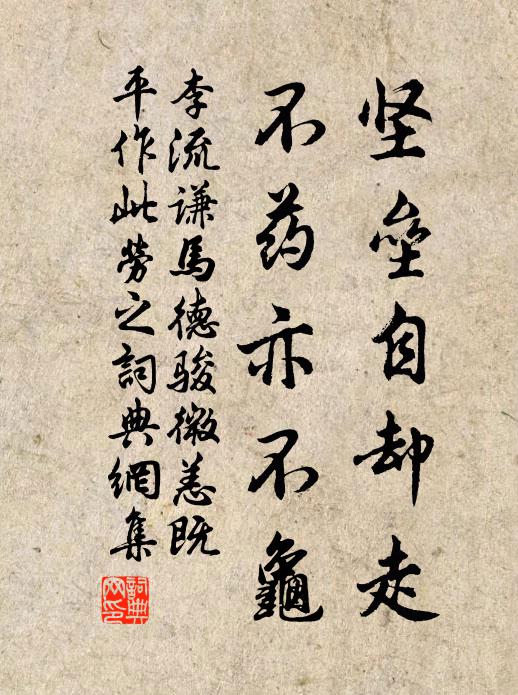 坚垒自却走
不药亦不龟
李流谦马德骏微恙既
平作此劳之词典網集
詞典
网印